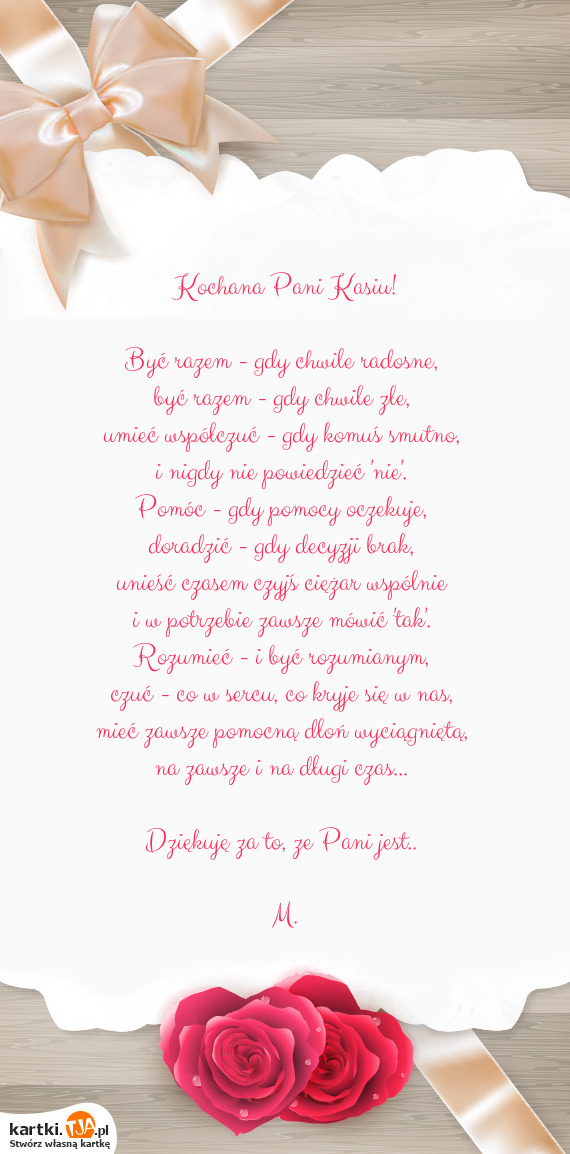 Kochana Pani Kasiu!
Być razem - gdy chwile radosne,
być razem - gdy chwile złe,
umieć współczuć - gdy komuś smutno,
i nigdy nie powiedzieć 'nie'.
Pomóc - gdy pomocy oczekuje,
doradzić - gdy decyzji brak,
unieść czasem czyjś ciężar wspólnie
i w potrzebie zawsze mówić 'tak'.
Rozumieć - i być rozumianym,
czuć - co w sercu, co kryje się w nas,
mieć zawsze pomocną dłoń wyciągniętą,
na zawsze i na długi czas...
Dziękuję za to, ze Pani jest..
M.
kartki.TJA.pl
Stwórz własną kartkę